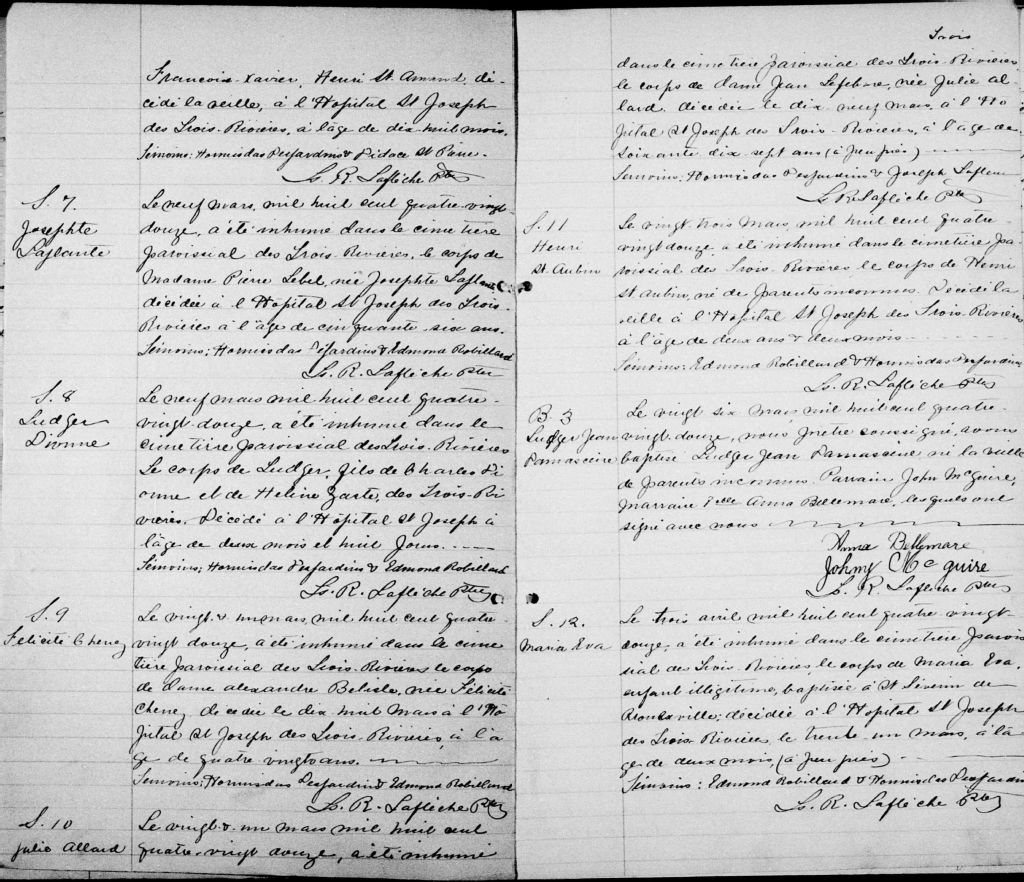 François-Xavier, Henri St Amand, dé-
cédé la veille, à l'Hôpital St Joseph
des Trois-Rivières, à l'âge de dix huit mois.
Témoins: Hormisdas Desjardins & Didace St Pierre.
L. R. Laflèche Ptre
S. 7
Josephte
Laplante
Le neuf mars, mil huit cent quatre-vingt
douze, a été inhumé dans le cimetière
paroissial des Trois-Rivières, le corps de
Madame Pierre Lebel, née Josephte Laplante,
décédée à l'Hôpital St Joseph des Trois-
Rivières à l'âge de cinquante six ans.
Témoins: Hormisdas Desjardins & Edmond Robillard
L. R. Laflèche Ptre
S. 8
Ludger
Dionne
Le neuf mars mil huit cent quatre-
vingt-douze, a été inhumé dans le
cimetière paroissial des Trois-Rivières
le corps de Ludger, fils de Charles Di
onne et de Helène Zarte, des Trois-Ri
vières. Décédé à l'Hôpital St Joseph à
l'âge de deux mois et huit jours.
Témoins; Hormisdas Desjardins & Edmond Robillard
L. R. Laflèche Ptre
S. 9
Félicité Chenez
Le vingt & un mars, mil huit cent quatre-
vingt douze, a été inhumé dans le cime
tière paroissial des Trois-Rivières le corps
de dame alexandre Belisle, née Félicité
Chenez décédée le dix huit mars à l'Hô
pital St Joseph des Trois-Rivières, à l'â
ge de quatre vingts ans.
Témoins; Hormisdas Desjardins & Edmond Robillard
L. R. Laflèche Ptre
S. 10
Julie Allard
Le vingt & un mars mil huit cent
quatre-vingt douze, a été inhumé
Trois
dans le cimetière paroissial des Trois-Rivières
le corps de dame Jean Lefebvre, née Julie Al
lard décédée le dix neuf mars, à l'Hô
pital St Joseph des Trois-Rivières, à l'âge de
soixante dix sept ans (à peu près)
Témoins: Hormisdas Desjardins & Joseph Lafleur
L. R. Laflèche Ptre
S. 11
Henri
St Aubin
Le vingt trois mars, mil huit cent quatre-
vingt douze a été inhumé dans le cimetière pa-
roissial des Trois-Rivières le corps de Henri
St Aubin, né de parents inconnus. Décédé la
veille à l'Hôpital St Joseph des Trois-Rivières
à l'âge de deux ans & deux mois
Témoins: Edmond Robillard & Hormisdas Desjardins
L. R. Laflèche Ptre
B. 3
Ludger Jean
Damascène
Le vingt six mars mil huit cent quatre-
vingt-douze, nous prêtre soussigné, avons
baptisé Ludger Jean Damascène, né la veille
de parents inconnus. Parrain John McGuire,
marraine Delle Anna Bellemare, lesquels ont
signé avec nous
Anna Bellemare
Johny McGuire
L. R. Laflèche Ptre
S. 12.
Maria Eva
Le trois avril mil huit cent quatre vingt
douze, a été inhumé dans le cimetière parois
sial des Trois-Rivières, le corps de Maria Eva,
enfant illégitime, baptisée à St Séverin de
Proulxville; décédée à l'Hôpital St Joseph
des Trois-Rivières, le trente-un mars, à l'â
ge de deux mois, (à peu près)
Témoins: Edmond Robillard & Hormisdas Desjardins
L. R. Laflèche Ptre